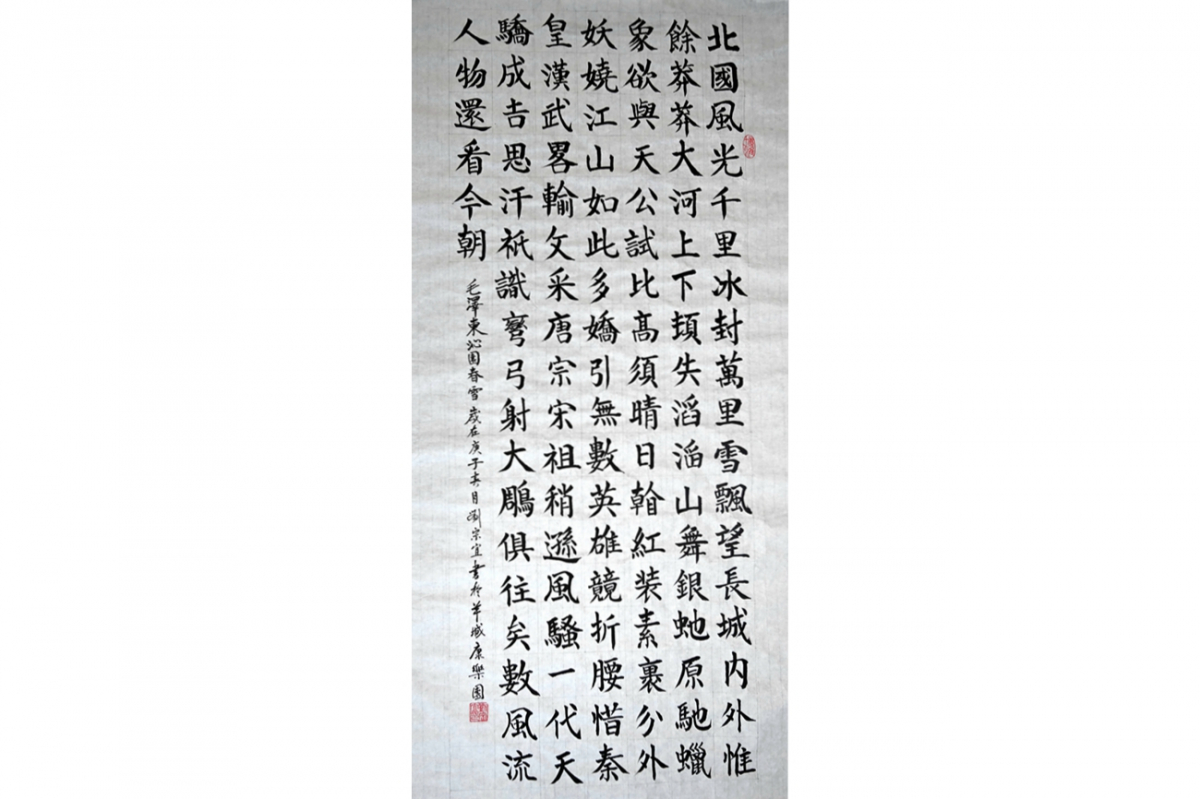 北國風光千里冰封萬里雪飄望長城內外惟
餘莽莽大河上下頓失滔滔山舞銀虵原馳蠟
象欲與天公試比髙須晴日紅装素裹分外
妖嬈江山如此多嬌引無數英雄競折腰惜秦
皇漢武畧輸文采唐宗宋祖稍遜風騷一代天
驕成吉思汗祇識彎弓射大鵰俱往矣數風流
人物還看今朝
毛澤東沁園春雪 歲在庚子月劉宗宜書於羊城康樂園